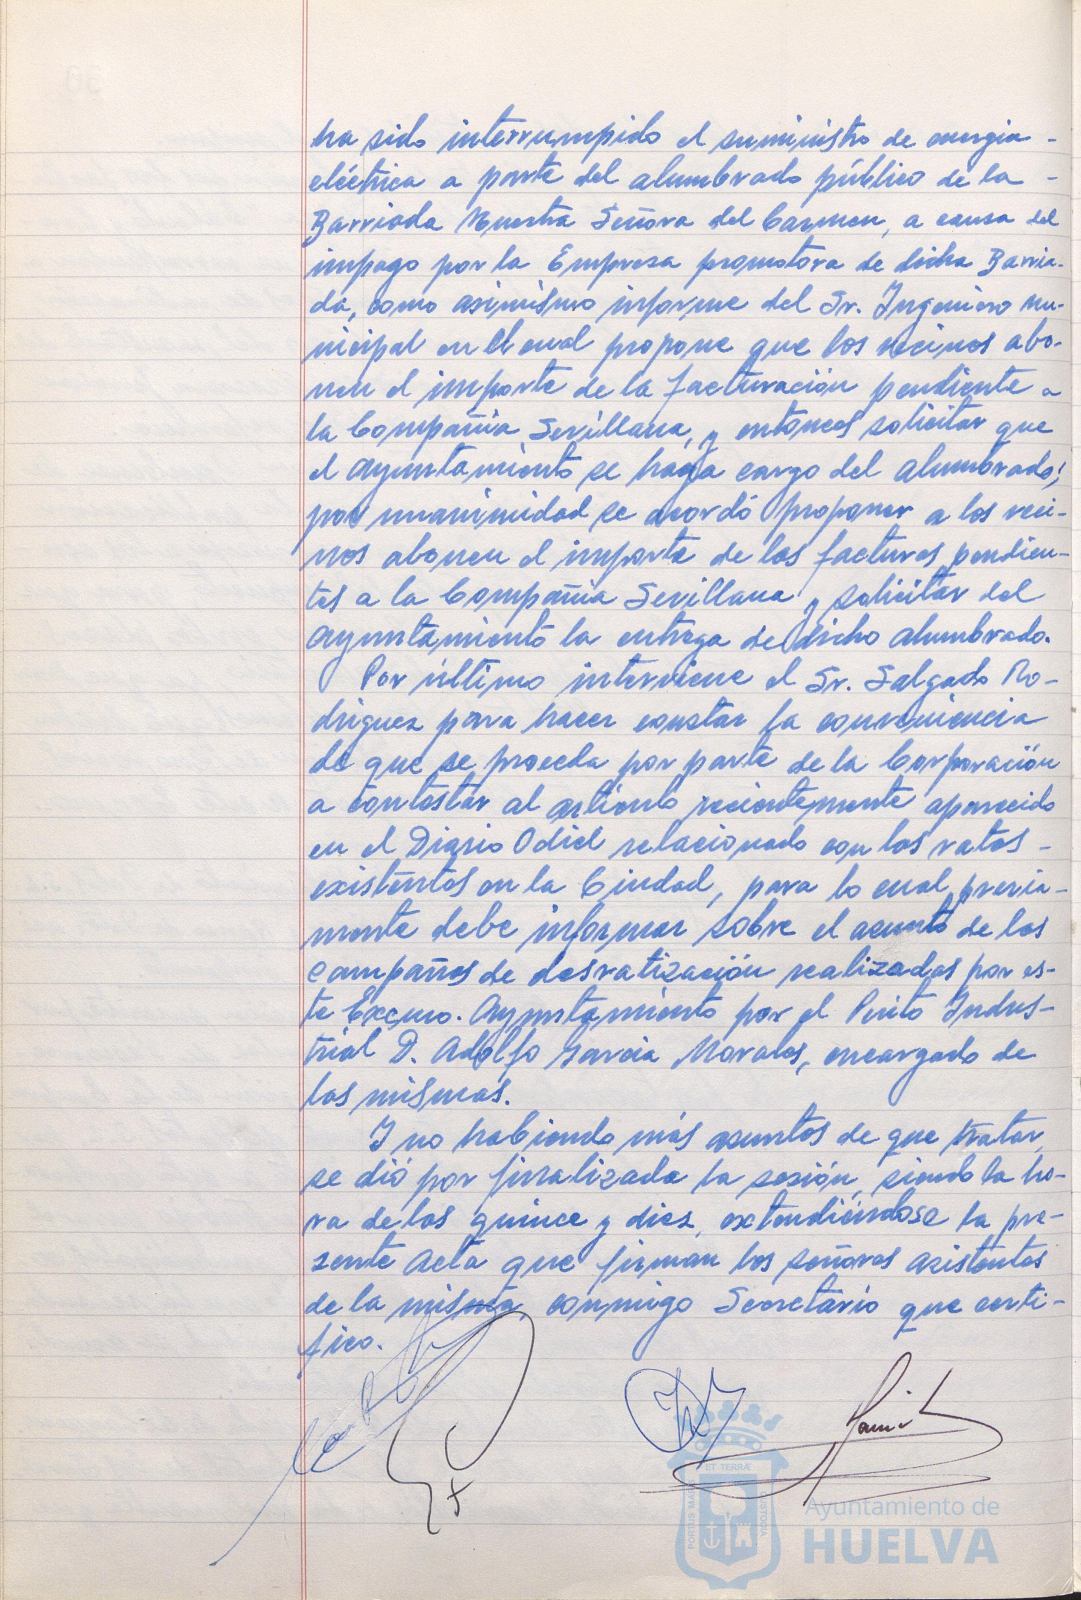 ha sido interrumpido el suministro de energia -
eléctrica a parte del alumbrado público de la -
Barriada Nuestra Señora del Carmen, a causa del
impago por la Empresa promotora de dicha Barria-
da, como asimismo informe del Sr. Ingeniero mu-
nicipal en el cual propone que los vecinos abo-
nen el importe de la facturación pendiente a
la Compañia Sevillana, y entonces solicitar que
el Ayuntamiento se haga cargo del alumbrado;
por unanimidad se acordó proponer a los veci-
nos abonen el importe de las facturas pendien-
tes a la Compañia Sevillana y solicitar del
Ayuntamiento la entrega de dicho alumbrado.
Por último interviene el Sr. Salgado Ro-
driguez para hacer constar la conveniencia
de que se proceda por parte de la Corporación
a contestar al articulo recientemente aparecido
en el Diario Odiel relacionado con las ratas -
existentes en la Ciudad, para lo cual previa-
mente debe informar sobre el asunto de las
campañas de desratización realizadas por es-
te Excmo. Ayuntamiento por el Perito Indus-
trial D. Adolfo Garcia Morales, encargado de
las mismas.
Y no habiendo más asuntos de que tratar,
se dió por finalizada la sesión, siendo la ho-
ra de las quince y diez, extendiéndose la pre-
sente Acta que firman los señores asistentes
de la misma, conmigo Secretario que certi-
fico.
ET TERRÆ
PORTUS MARIS
CUSTODIA
Ayuntamiento de
HUELVA